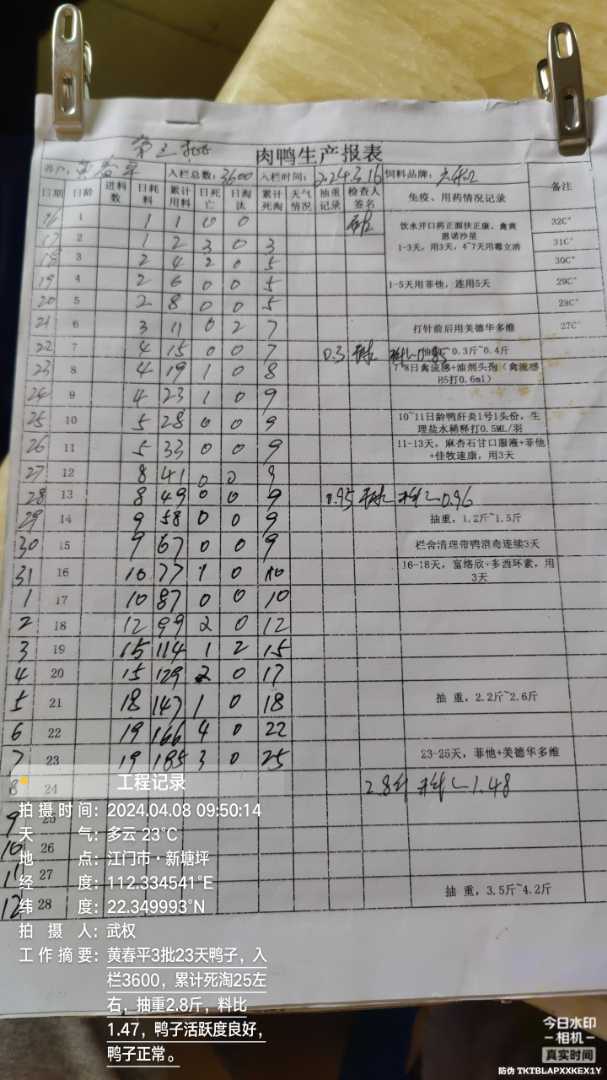 第三批 肉鸭生产报表
入栏总数: 3600 入栏时间: 224.3.16 饲料品牌:
日期 日龄 进料数 日耗料 累计用料 日死亡 日淘汰 累计死淘 天气情况 抽重记录 检查人签名 免疫、用药情况记录 备注
16 1 1 1 0 0 饮水开口药正面扶正康、禽黄 32C°
恩诺沙星
17 2 1 2 3 0 3 1-3天，用3天，4~7天用霉立消 31C°
18 3 2 4 2 0 5 30C°
19 4 2 6 0 0 5 1-5天用菲他，连用5天 29C°
20 5 2 8 0 0 5 28C°
21 6 3 11 0 2 7 打针前后用美德华多维 27C°
22 7 4 15 0 0 7 0.3 0.3斤~0.4斤
23 8 4 19 1 0 8 7-8日禽流感+油剂头孢（禽流感
H5打0.6ml）
24 9 4 23 1 0 9
25 10 5 28 0 0 9 10~11日龄鸭肝炎1号1头份，生
理盐水稀释打0.5ML/羽
26 11 5 33 0 0 9 11-13天，麻杏石甘口服液+菲他
+佳牧速康，用3天
27 12 8 41 0 0 9
28 13 8 49 0 0 9 0.95 0.96
29 14 9 58 0 0 9 抽重，1.2斤~1.5斤
30 15 9 67 0 0 9 栏舍清理带鸭消毒连续3天
31 16 10 77 1 0 10 16-18天，富络欣+多西环素，用
3天
1 17 10 87 0 0 10
2 18 12 99 2 0 12
3 19 15 114 1 2 15
4 20 15 129 2 0 17
5 21 18 147 1 0 18 抽 重，2.2斤~2.6斤
6 22 19 166 4 0 22
7 23 19 185 3 0 25 23-25天，菲他+美德华多维
8 24 2.8斤 料比1.48
9 25
10 26
11 27
12 28 抽 重，3.5斤~4.2斤
工程记录
拍摄时间：2024.04.08 09:50:14
天 气：多云 23℃
地 点：江门市·新塘坪
经 度：112.334541°E
纬 度：22.349993°N
拍 摄 人：武权
工作摘要：黄春平3批23天鸭子，入
栏3600，累计死淘25左
右，抽重2.8斤，料比
1.47，鸭子活跃度良好，
鸭子正常。
今日水印
-相机-
真实时间
防伪 TKTBLAPXXKEX1Y